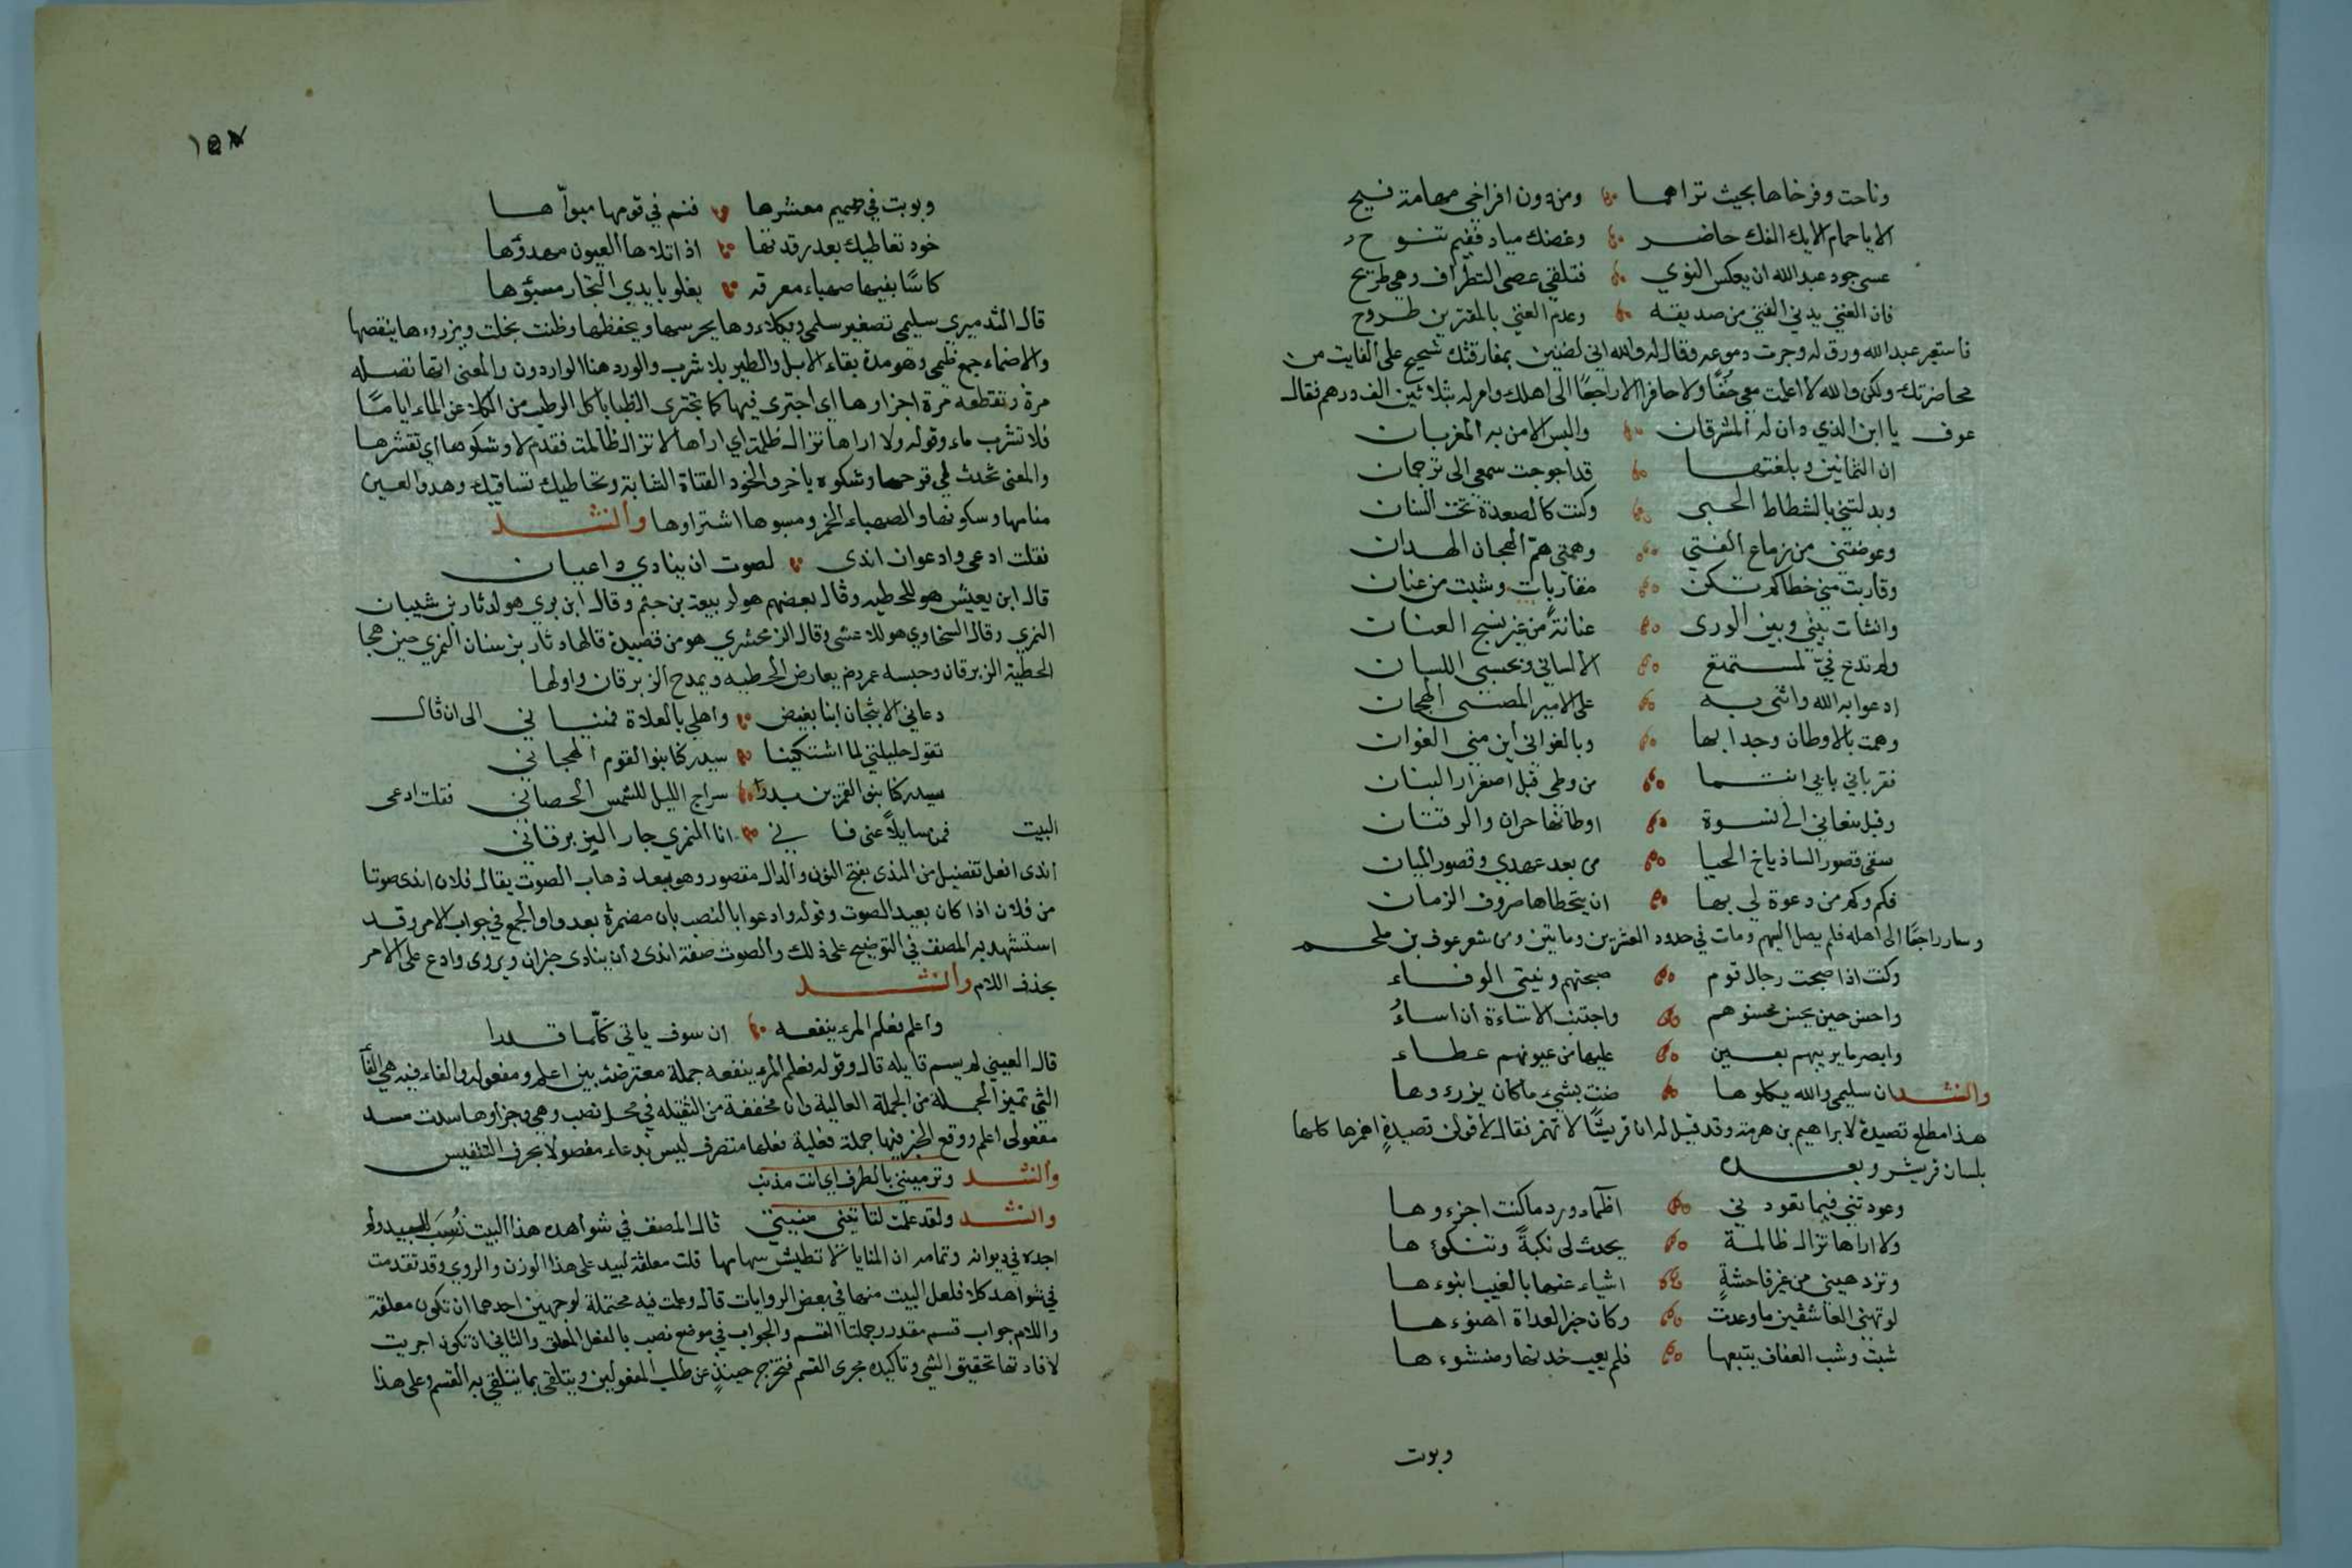 وناحت وفرخاها بحيث تراهما ومن دون افراخي مهامة فيح
الا يا حمام الايك الفك حاضر وغصنك مياد ففيم تنوح
عسى جود عبد الله ان يعكس النوي فتلقي عصى التطراف وهي طريح
فان الغنى يدني الفتي من صديقه وعدم الغني بالمقترين طروح
فاستعبر عبد الله ورق له وجرت دموعه وقال له والله اني لضنين بمفارقتك شحيح على الفايت من
محاضرتك ولكن والله لا اعملت معي خفا ولا حافرا الا راجعا الى اهلك وامر له بثلاثين الف درهم فقال
عوف يا ابن الذي دان له المشرقان والبس الامن به المغربان
ان الثمانين وبلغتها قد احوجت سمعي الى ترجمان
وبدلتني بالشطاط الحنى وكنت كالصعدة تحت السنان
وعوضتني من زماع الفتي وهمتي هم الهجان الهدان
وقاربت مني خطا لم تكن مقاربات وثنت من عنان
وانشات بيني وبين الورى عنانة من غير نسج العنان
ولم تدع في لمستمتع الا لساني وبحسبي اللسان
ادعو به الله واثني به على الامير المصعبى الهجان
وهمت بالاوطان وجدا بها وبالغواني اين مني الغوان
فقرباني بابي انتما من وطني قبل اصفرار البنان
وقبل منعاي الى نسوة اوطانها حران والرقتان
سقى قصور الساذياخ الحيا من بعد عهدي وقصور الميان
فكم وكم من دعوة لي بها ان يتخطاها صروف الزمان
وسار راجعا الى اهله فلم يصل اليهم ومات في حدود العشرين وماىتين ومن شعر عوف بن ملحم
وكنت اذا صحبت رجال قوم صحبتهم ونيتي الوفاء
واحسن حين يحسن محسنوهم واجتنب الاساءة ان اساءُ
وابصر ما يريبهم بعين عليها من عيونهم عطاء
وانشد ان سليمى والله يكلوها ضنت بشيء ما كان يزرءوها
هذا مطلع قصيدة لابراهيم بن هرمة وقد قيل له ان قريشا لا تهمز فقال لاقولن قصيدةٍ اهمزها كلها
بلسان قريش وبعده
وعودتني فيما تعودني اظماء ورد ما كنت اجزءوها
ولا اراها تزال ظالمة يحدث لى نكبةً وتنكوءها
وتزدهيني من غير فاحشةٍ اشياء عنها بالغيب انبوءها
لو تهنى العاشقين ما وعدت وكان خير العداة اهنوءها
شبت وشب العفاف يتبعها فلم يعب خدنها ومنشوءها
وبوت
١٥٧
وبوبت في صميم معشرها فتم في قومها مبواها
خود تعاطيك بعد رقدتها اذا تلاها العيون مهدوها
كاسًا بفيها صهباء معرقه يغلو بايدي التجار مسبؤها
قال الدميري سليمى تصغير سلمى ويكلاوها يحرسها ويحفظها وظنت بخلت ويزروءها ينقصها
والاضماء جمع ظمى وهو مدة بقاء الابل والطير بلا شرب والورد هنا الواردون والمعنى انها تصله
مرة وتقطعه مرة اجزاوها اي اجتزى فيها كما تجتزى الظبا باكل الرطب من الكلا عن الماء اياما
فلا تشرب ماء وقوله ولا اراها تزال ظالمة اي اراها لا تزال ظالمة فقدم لا وشكوها اي تقشرها
والمعنى تحدث لي قرحها وشكوه باخر والخود الفتاة الشابة وتعاطيك تساقيك وهدو العين
منامها وسكونها والصهباء الخمر ومسبوها اشتراوها وانشد
فقلت ادعى وادعو ان اندى لصوت ان ينادي داعيان
قال ابن يعيش هو للحطيه وقال بعضهم هو لربيعة بن جثم وقال ابن بري هو لدثار بن شيبان
النمري وقال السخاوي هو للاعشى وقال الزمخشري هو من قصيدة قالها دثار بن سنان النمري حين هجا
الحطية الزبرقان وحبسه عمر وهو يعارض الحطيه ويمدح الزبرقان واولها
دعاني الاثبجان ابنا بغيض واهلي بالعلاة فمنياني الى ان قال
تقول حليلتي لما اشتكينا سيدركنا بنو القوم الهجاني
سيدركنا بنو القمر بن بدر سراج الليل للشمس الحصاني فقلت ادعى
البيت فمن سايلا عني فاني انا النمري جار الزبرقاني
اندى افعل تفضيل من الندى بفتح النون والدال مقصور وهو بعد ذهاب الصوت يقال فلان اندى صوتا
من فلان اذا كان بعيد الصوت وقوله وادعوا بالنصب بان مضمرة بعد واو الجمع في جواب الامر وقد
استشهد به المصنف في التوضيح على ذلك والصوت صفة اندى وان ينادى خبران ويروى وادع على الامر
بحذف اللام وانشد
واعلم فعلم المرء ينفعه ان سوف ياتي كلما قدرا
قال العيني لم يسم قايله قال وقوله فعلم المرء ينفعه جملة معترضة بين اعلم ومفعوله والفاء فيه هي الفا
التي تميز الجملة من الجملة الحالية وان مخففة من الثقيله في محل نصب وهي وجزاوها سدت مسد
مفعولى اعلم ووقع الخبر فيها جملة فعلية فعلها متصرف ليس بدعاء مفصولا بحرف التنفيس
وانشد وترمينني بالطرف اي انت مذنب
وانشد ولقد علمت لتاتين منيتي قال المصنف في شواهده هذا البيت نُسِب للبيد ولم
اجده في ديوانه وتمامه ان المنايا لا تطيش سهامها قلت معلقة لبيد على هذا الوزن والروي وقد تقدمت
في شواهد كلا فلعل البيت منها في بعض الروايات قال وعلمت فيه محتملة لوجهين احدهما ان تكون معلقة
واللام جواب قسم مقدر وجملتا القسم والجواب في موضع نصب بالفعل المعلق والثاني ان تكون اجريت
لافادتها تحقيق الشي وتاكيده مجرى القسم فتخرج حينئذٍ عن طلب المفعولين ويتلقى بما يتلقى به القسم وعلى هذا